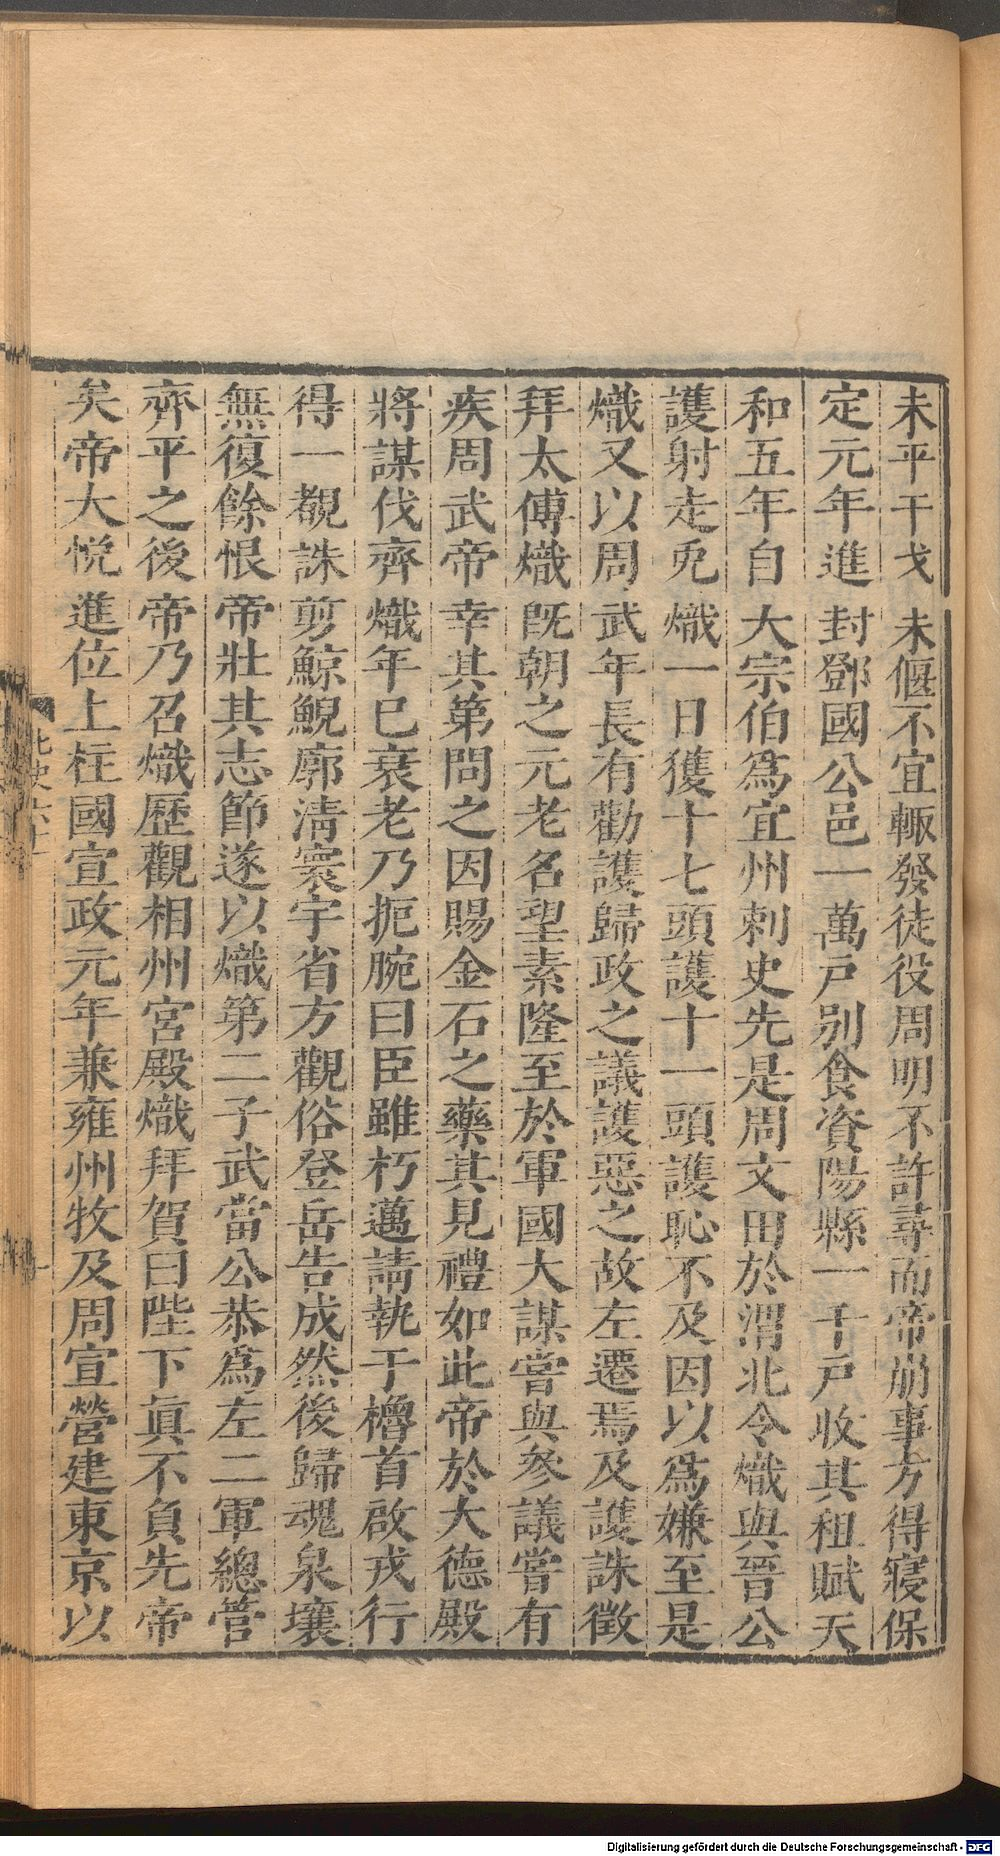 未平干戈未偃不宜輙發徒役周明不許尋而帝崩事方得寢保
定元年進封鄧國公邑一萬戶别食資陽縣一千戶收其租賦天
和五年自大宗伯爲宜州刺史先是周文田於渭北令熾與晉公
護射走兎熾一日獲十七頭護十一頭護恥不及因以爲嫌至是
熾又以周武年長有勸護歸政之議護惡之故左遷焉及護誅徵
拜太傅熾旣朝之元老名望素隆至於軍國大謀嘗與參議嘗有
疾周武帝幸其第問之因賜金石之藥其見禮如此帝於大德殿
將謀伐齊熾年已衰老乃扼腕曰臣雖朽邁請執干櫓首啟戎行
得一覩誅剪鯨鯢廓清寰宇省方觀俗登岳告成然後歸魂泉壤
無復餘恨帝壯其志節遂以熾第二子武當公恭爲左二軍總管
齊平之後帝乃召熾歷觀相州宮殿熾拜賀曰陛下眞不負先帝
矣帝大悅進位上柱國宣政元年兼雍州牧及周宣營建東京以
北史六十一
Digitalisierung gefördert durch die Deutsche Forschungsgemeinschaft - DFG